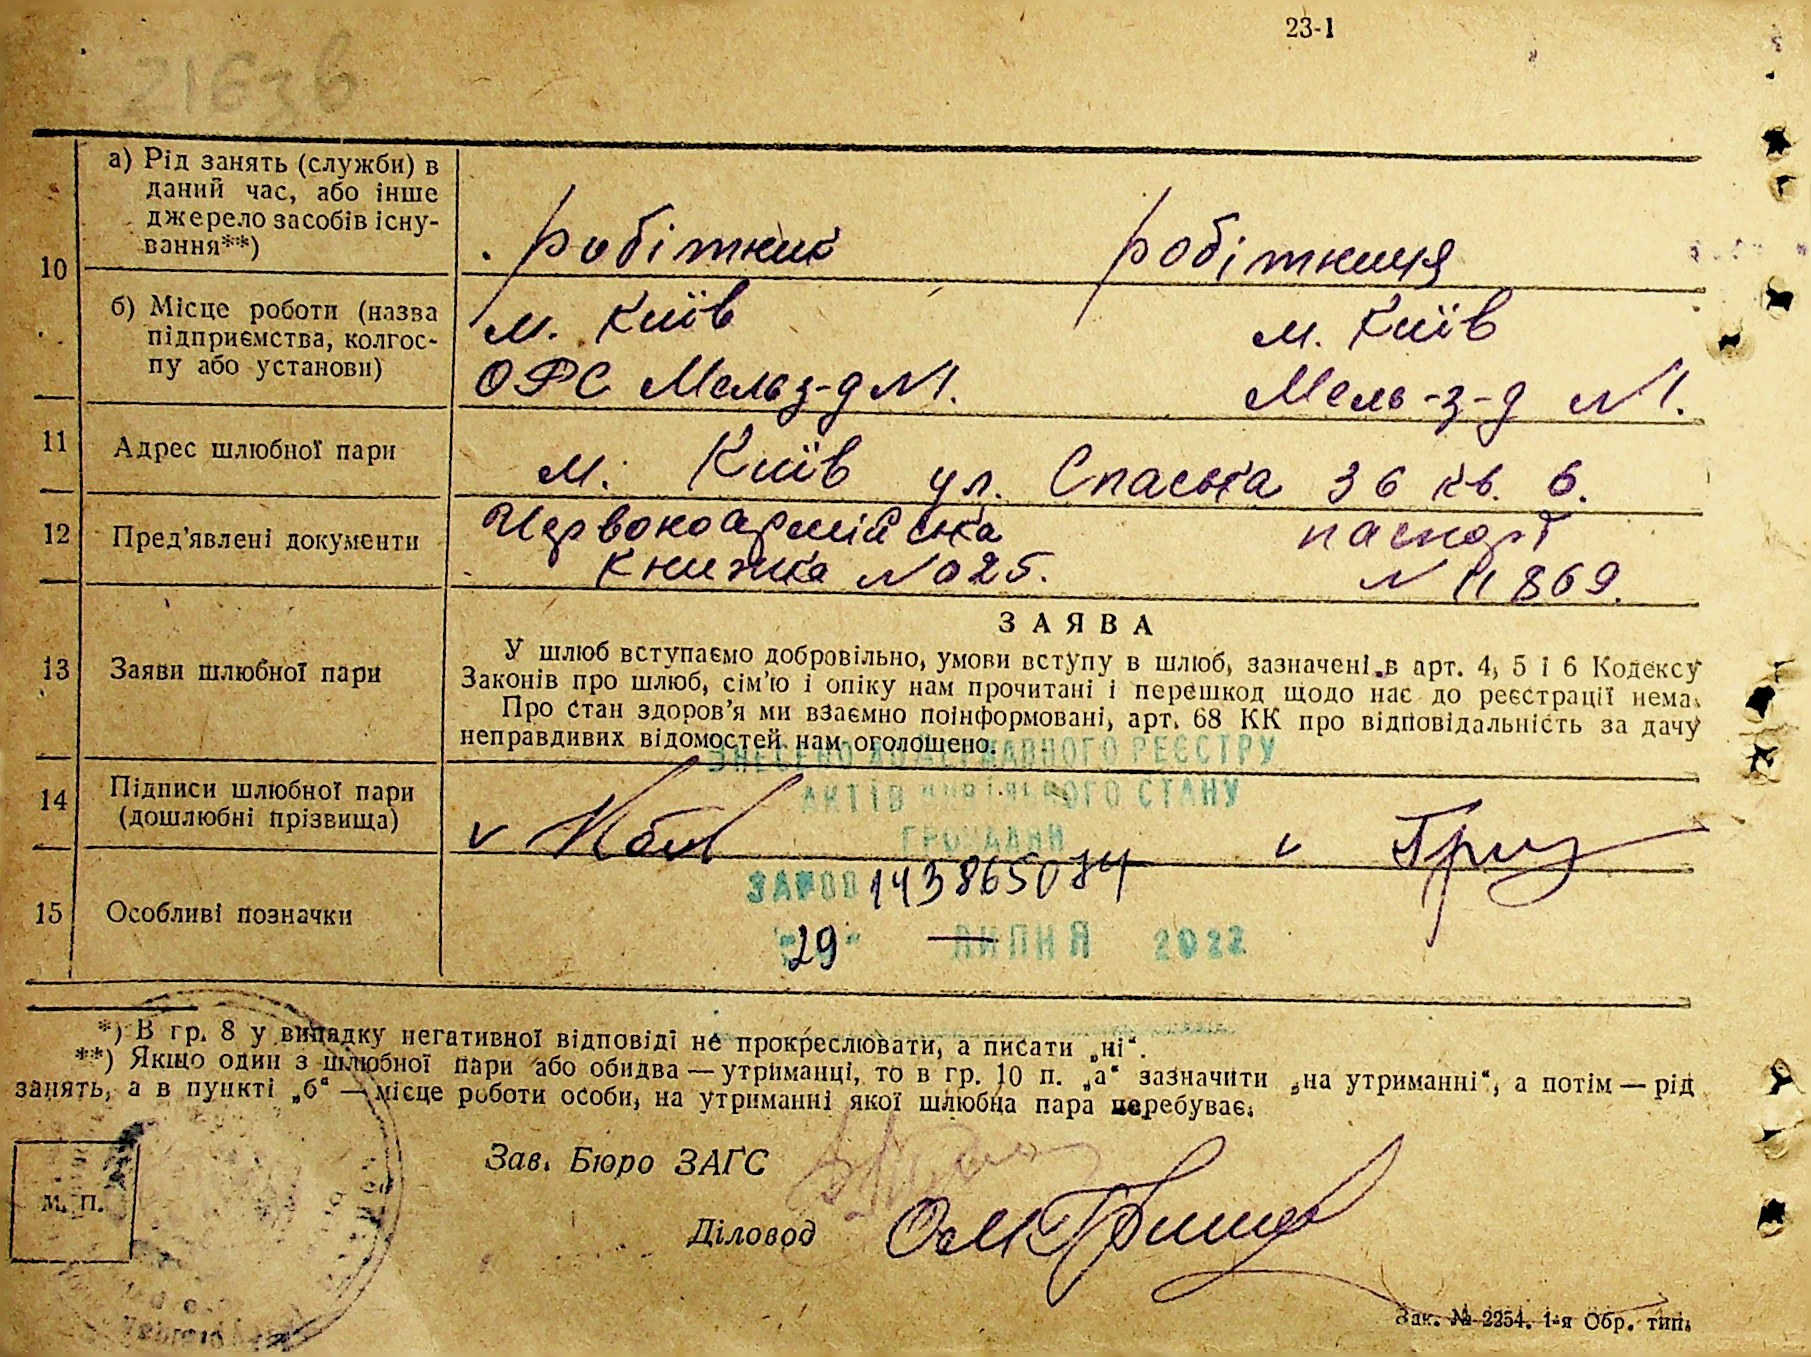 23-1
21636
10
а) Рід занять (служби) в
даний час, або інше
джерело засобів існу-
вання**)
робітник робітниця
б) Місце роботи (назва
підприємства, колгос-
пу або установи)
м. Київ м. Київ
ОРС Мельз-д №1. Мель-з-д №1.
11 Адрес шлюбної пари
м. Київ ул. Спаська 36 кв. 6.
12 Пред'явлені документи
Червоноармійська паспорт
книжка №025. № 11869.
13 Заяви шлюбної пари
ЗАЯВА
У шлюб вступаємо добровільно, умови вступу в шлюб, зазначені в арт. 4, 5 і 6 Кодексу
Законів про шлюб, сім'ю і опіку нам прочитані і перешкод щодо нас до реєстрації нема.
Про стан здоров'я ми взаємно поінформовані, арт. 68 КК про відповідальність за дачу
неправдивих відомостей нам оголошено.
ВНЕСЕНО ДО ДЕРЖАВНОГО РЕЄСТРУ
АКТІВ ЦИВІЛЬНОГО СТАНУ
ГРОМАДЯН
14 Підписи шлюбної пари
(дошлюбні прізвища)
15 Особливі позначки
1438650
29 ЛИПНЯ 2022
*) В гр. 8 у випадку негативної відповіді не прокреслювати, а писати „ні“.
**) Якщо один з шлюбної пари або обидва — утриманці, то в гр. 10 п. „а“ зазначити „на утриманні“, а потім — рід
занять, а в пункті „б“ — місце роботи особи, на утриманні якої шлюбна пара перебуває.
Зав. Бюро ЗАГС
М. П.
Діловод
Зак. № 2254. 1-я Обр. тип.